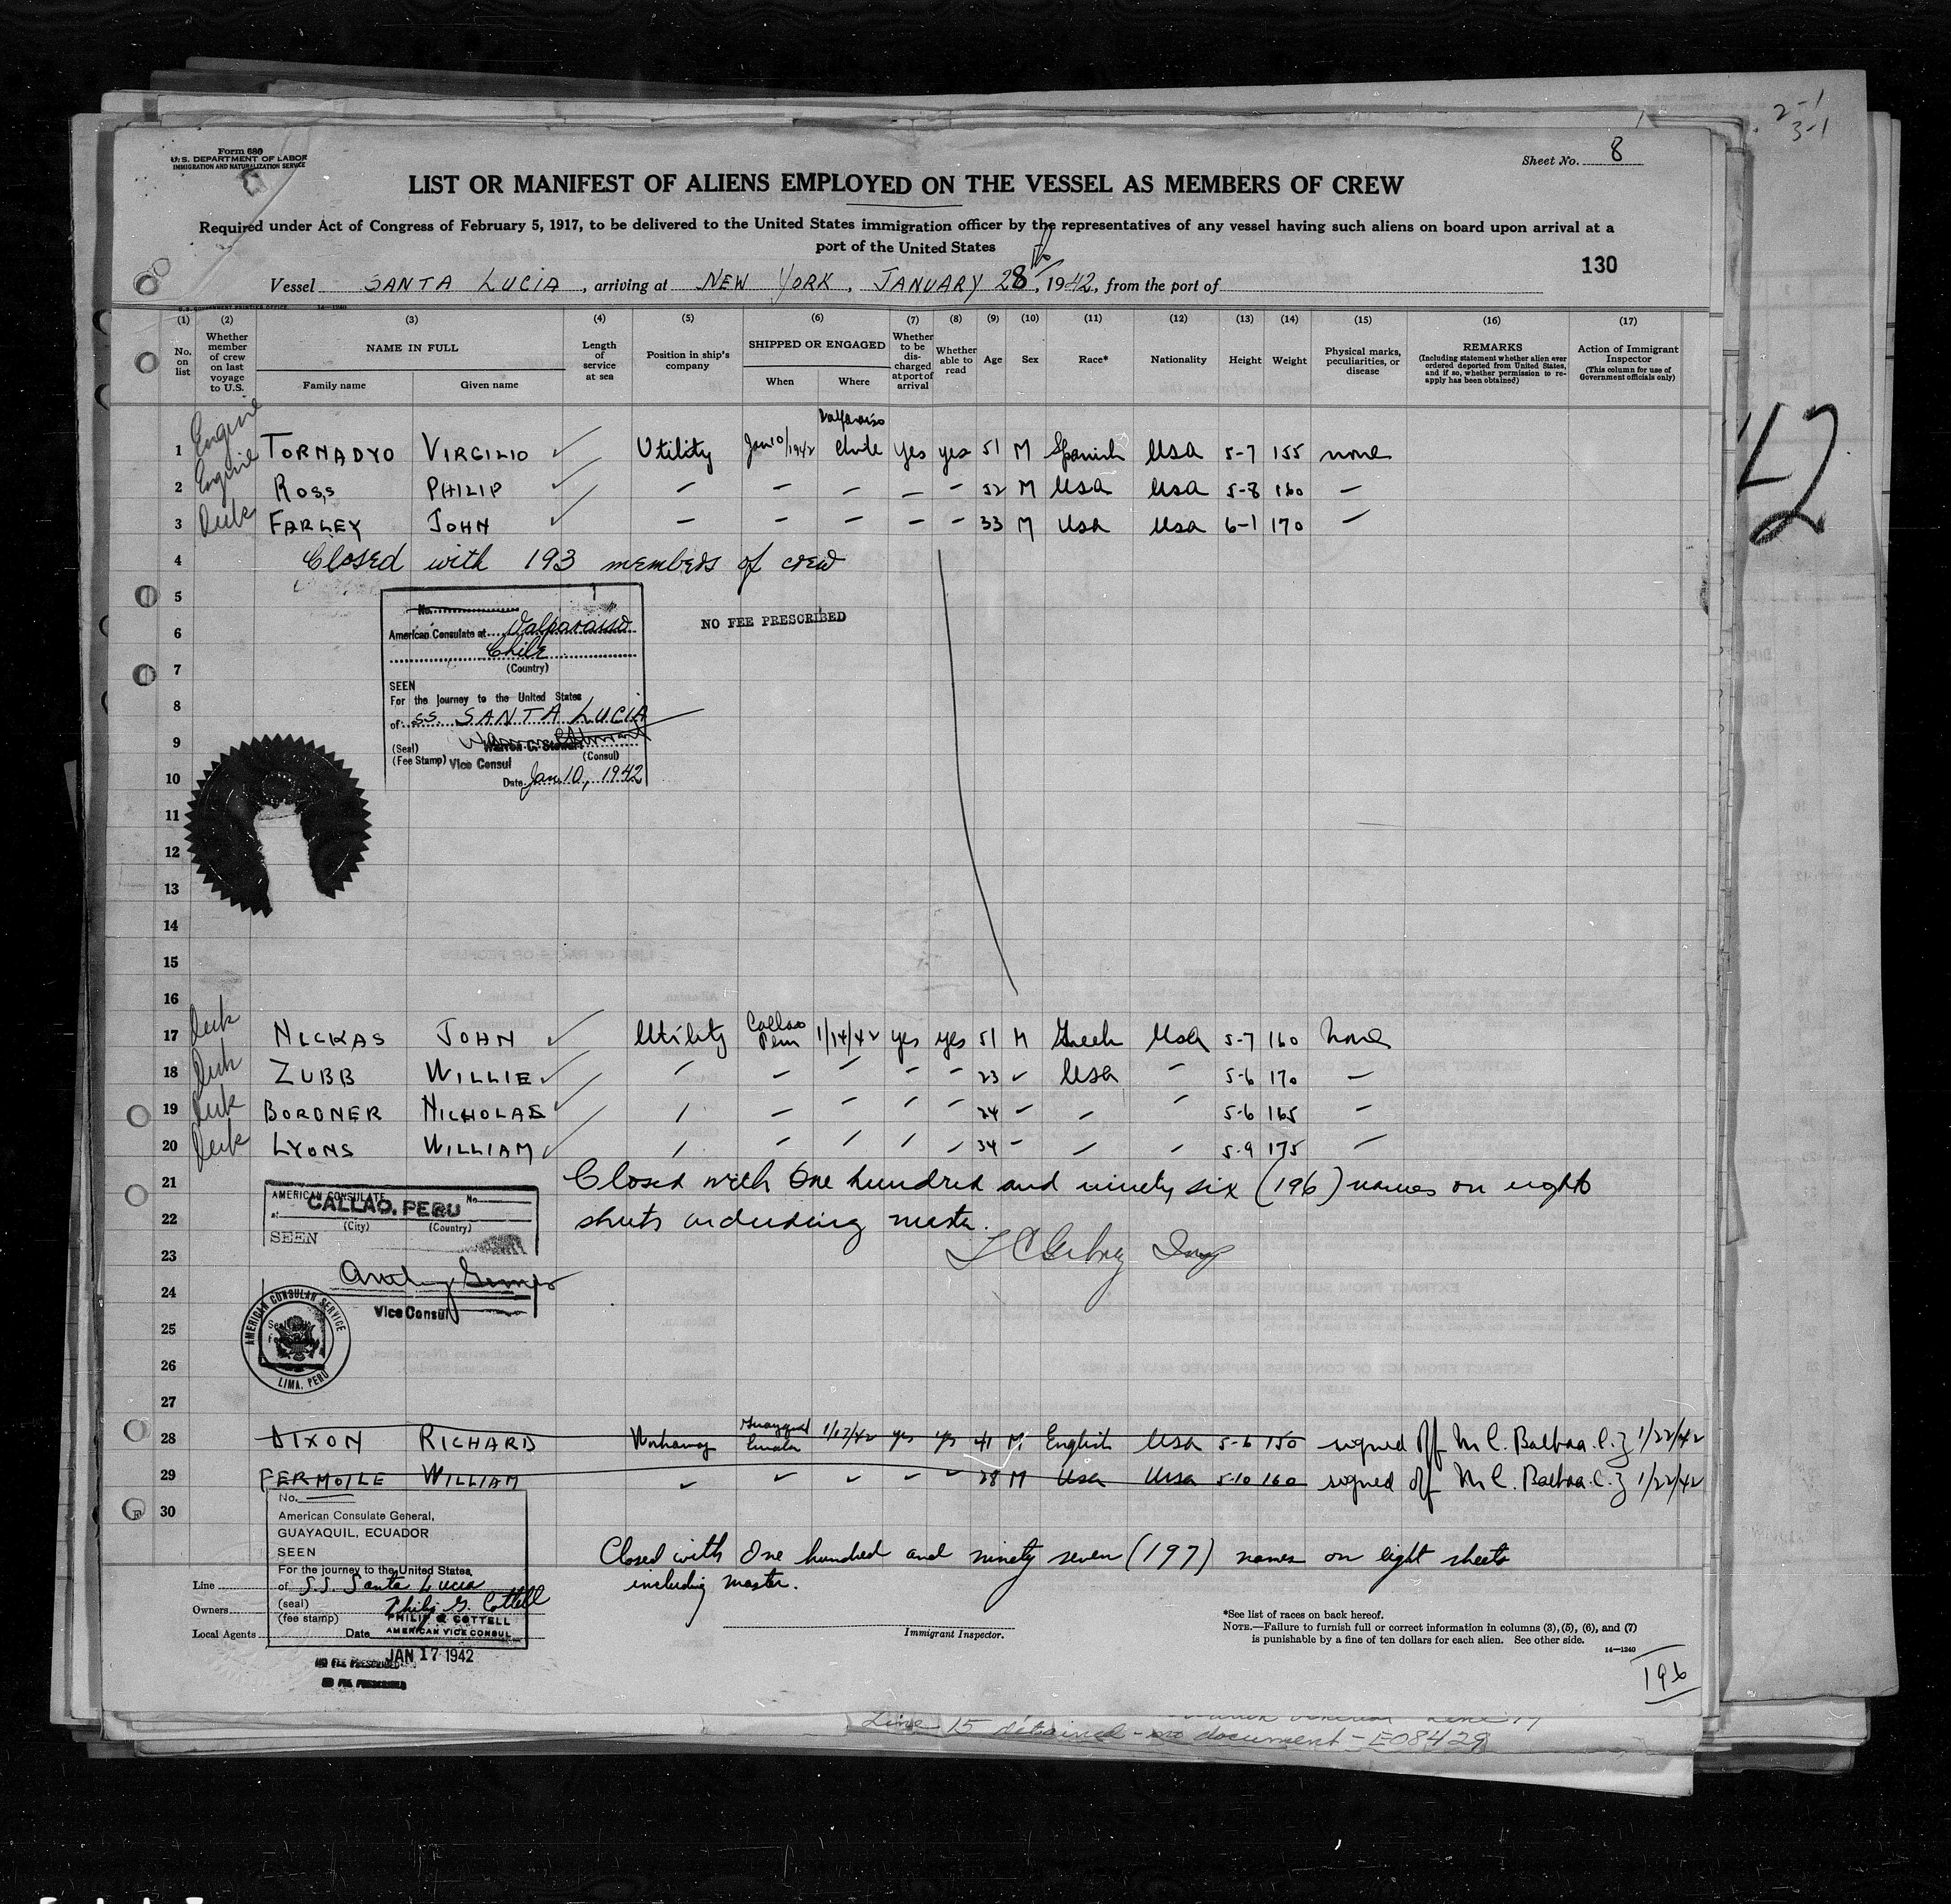 2-1
3-1
Form 680
U. S. DEPARTMENT OF LABOR
IMMIGRATION AND NATURALIZATION SERVICE
Sheet No. 8
LIST OR MANIFEST OF ALIENS EMPLOYED ON THE VESSEL AS MEMBERS OF CREW
Required under Act of Congress of February 5, 1917, to be delivered to the United States immigration officer by the representatives of any vessel having such aliens on board upon arrival at a
port of the United States
130
Vessel SANTA LUCIA, arriving at NEW YORK, JANUARY 28th, 1942, from the port of
(1) (2) (3) (4) (5) (6) (7) (8) (9) (10) (11) (12) (13) (14) (15) (16) (17)
No. on list
Whether member of crew on last voyage to U.S.
NAME IN FULL
Family name Given name
Length of service at sea
Position in ship's company
SHIPPED OR ENGAGED
When Where
Whether to be discharged at port of arrival
Whether able to read
Age
Sex
Race*
Nationality
Height
Weight
Physical marks, peculiarities, or disease
REMARKS
(Including statement whether alien ever ordered deported from United States, and if so, whether permission to reapply has been obtained)
Action of Immigrant Inspector
(This column for use of Government officials only)
1 Engine TORNADYO VIRGILIO Utility Jan 10/1942 Valparaiso Chile yes yes 51 M Spanish USA 5-7 155 none
2 Engine ROSS PHILIP – – – – – 52 M USA USA 5-8 160 –
3 Deck FARLEY JOHN – – – – – 33 M USA USA 6-1 170 –
4 Closed with 193 members of crew
5
6
7
8
9
10
11
12
13
14
15
16
No.
American Consulate at Valparaiso
Chile
(Country)
SEEN
For the journey to the United States
of S.S. SANTA LUCIA
(Seal) Warren C. Stewart
(Fee Stamp) Vice Consul (Consul)
Date Jan 10, 1942
NO FEE PRESCRIBED
42
17 Deck NICKAS JOHN Utility Callao Peru 1/14/42 yes yes 51 M Greek USA 5-7 160 none
18 Deck ZUBB WILLIE – – – – – 23 – USA – 5-6 170 –
19 Deck BORDNER NICHOLAS – – – – – 24 – – – 5-6 165 –
20 Deck LYONS WILLIAM – – – – – 34 – – – 5-9 175 –
21 Closed with One hundred and ninety six (196) names on eight
22 sheets including master.
23
24
25
26
27
AMERICAN CONSULATE No.
at CALLAO, PERU
(City) (Country)
SEEN
Vice Consul
AMERICAN CONSULAR SERVICE
LIMA, PERU
28 DIXON RICHARD Workaway Guayaquil Ecuador 1/17/42 yes yes 41 M English USA 5-6 150 signed off M C. Balboa. C. Z 1/22/42
29 FERMOILE WILLIAM – – – – – 28 M USA USA 5-10 160 signed off M C. Balboa. C. Z 1/22/42
30
No.
American Consulate General,
GUAYAQUIL, ECUADOR
SEEN
For the journey to the United States,
of SS Santa Lucia
(seal) Philip G. Cottell
(fee stamp) PHILIP G COTTELL
Date AMERICAN VICE CONSUL
JAN 17 1942
NO FEE PRESCRIBED
NO FEE PRESCRIBED
Closed with One hundred and ninety seven (197) names on eight sheets
including master.
Line
Owners
Local Agents
Immigrant Inspector.
*See list of races on back hereof.
NOTE.—Failure to furnish full or correct information in columns (3), (5), (6), and (7)
is punishable by a fine of ten dollars for each alien. See other side.
14—1240
196
Line 15 detained - no document - E08429